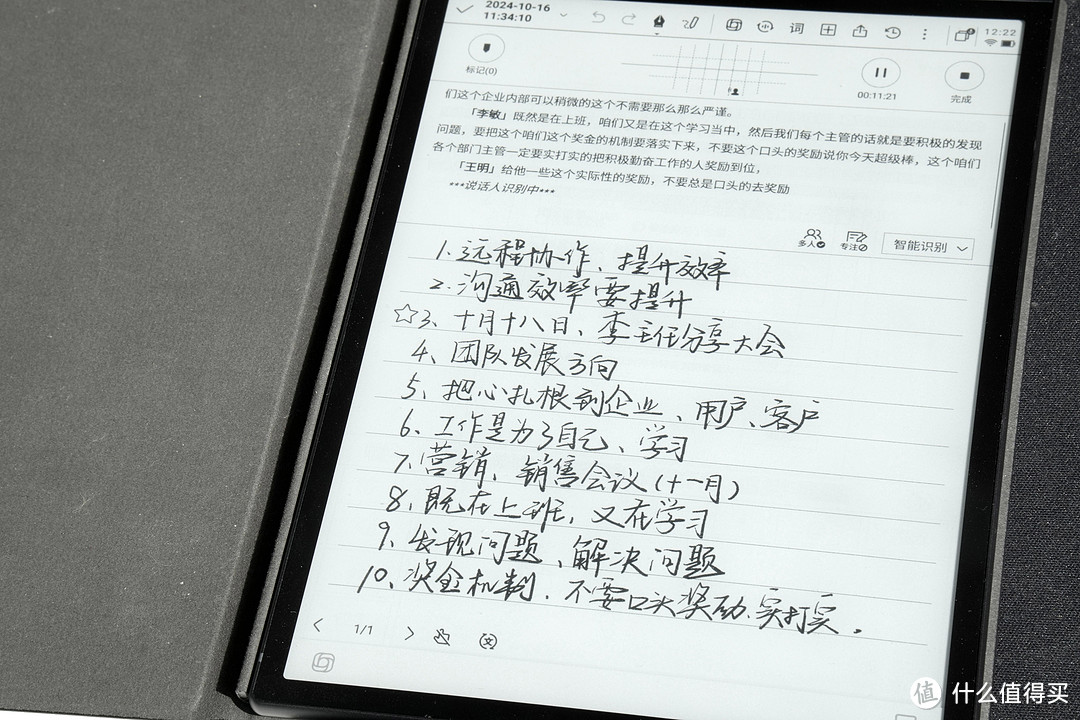 2024-10-16
11:34:10
词
12:22
标记(0)
00:11:21
完成
们这个企业内部可以稍微的这个不需要那么那么严谨。
「李敏」既然是在上班，咱们又是在这个学习当中，然后我们每个主管的话就是要积极的发现
问题，要把这个咱们这个奖金的机制要落实下来，不要这个口头的奖励说你今天超级棒，这个咱们
各个部门主管一定要实打实的把积极勤奋工作的人奖励到位，
「王明」给他一些这个实际性的奖励，不要总是口头的去奖励
***说话人识别中***
多人 专注 智能识别
1.远程协作、提升效率
2.沟通效率要提升
☆3、十月十八日、李主任分享大会
4、团队发展方向
5、把心扎根到企业、用户、客户
6、工作是为了自己、学习
7.营销、销售会议(十一月)
8.既在上班，又在学习
9、发现问题、解决问题
10、奖金机制.不要口头奖励.实打实.
1/1
值 什么值得买